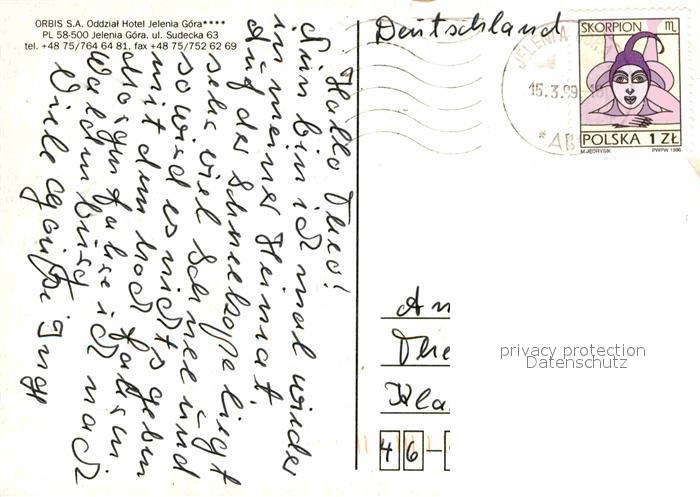 ORBIS S.A. Oddział Hotel Jelenia Góra****
PL 58-500 Jelenia Góra, ul. Sudecka 63
tel. +48 75/764 64 81, fax +48 75/752 62 69
Hallo Theo!
Nun bin ich mal wieder
in meiner Heimat.
Auf der Schneekoppe liegt
sehr viel Schnee und
so wird es nichts geben
mit dem hoch fahren
Morgen fahre ich nach
Waldenburg
Viele Grüße Inge
Deutschland
JELENIA GÓRA
15.3.99
SKORPION ♏
POLSKA 1 ZŁ
M.JĘDRYSIK PWPW 1996
An
The
Kla
46-
privacy protection
Datenschutz